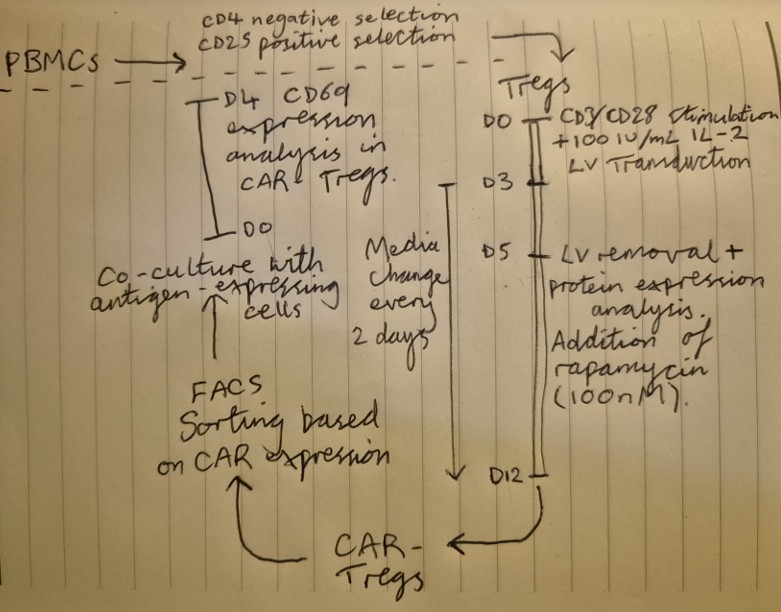 CD4 negative selection
CD25 positive selection
PBMCs
Tregs
D0
CD3/CD28 stimulation
+100 IU/mL IL-2
LV Transduction
D3
D5
LV removal +
protein expression
analysis.
Addition of
rapamycin
(100nM).
Media
change
every
2 days
D12
CAR-
Tregs
FACS
Sorting based
on CAR expression
Co-culture with
antigen-expressing
cells
D0
D4 CD69
expression
analysis in
CAR-Tregs.